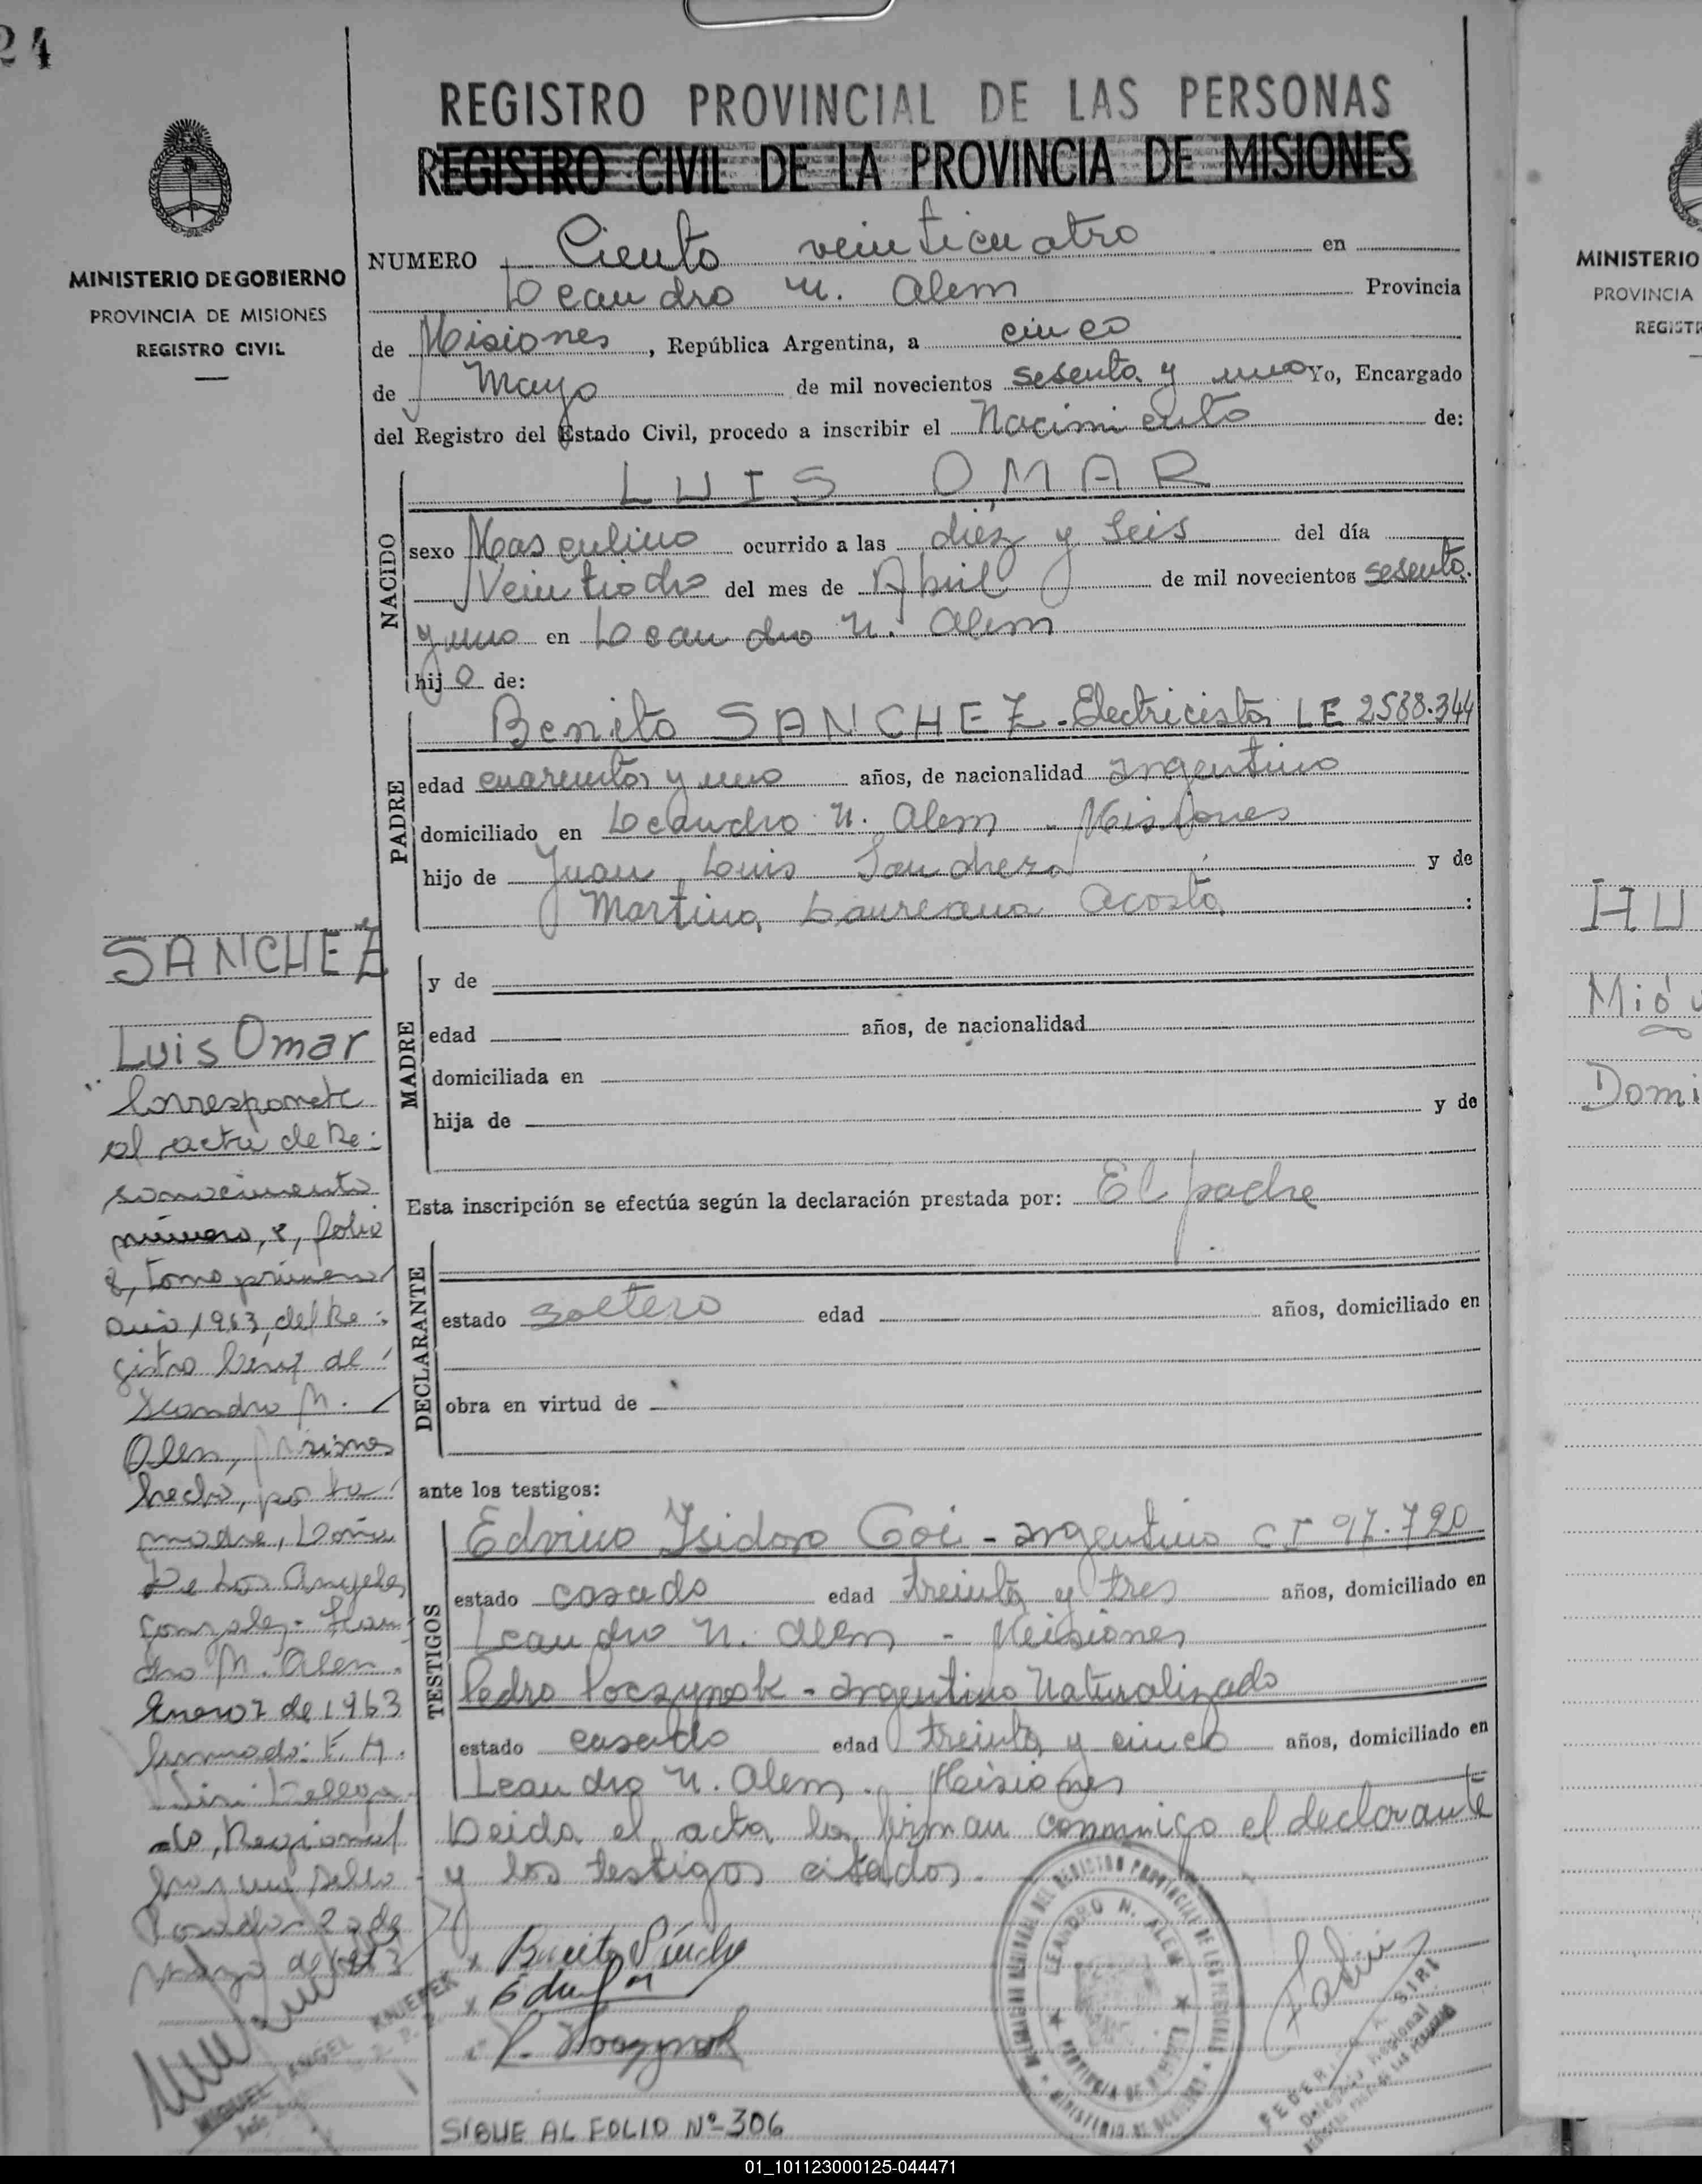 24
MINISTERIO DE GOBIERNO
PROVINCIA DE MISIONES
REGISTRO CIVIL
REGISTRO PROVINCIAL DE LAS PERSONAS
REGISTRO CIVIL DE LA PROVINCIA DE MISIONES
NUMERO Ciento veinticuatro en
Leandro N. Alem Provincia
de Misiones, República Argentina, a cinco
de Mayo de mil novecientos sesenta y uno Yo, Encargado
del Registro del Estado Civil, procedo a inscribir el Nacimiento de:
NACIDO
LUIS OMAR
sexo Masculino ocurrido a las diéz y Seis del día
Veintiocho del mes de Abril de mil novecientos sesenta
y uno en Leandro N. Alem
hijo de:
PADRE
Benito SANCHEZ - Electricista LE 2588.344
edad cuarenta y uno años, de nacionalidad argentino
domiciliado en Leandro N. Alem - Misiones
hijo de Juan Luis Sanchez y de
Martina Laureana Acosta :
MADRE
y de
edad años, de nacionalidad
domiciliada en
hija de y de
Esta inscripción se efectúa según la declaración prestada por: El padre
DECLARANTE
estado soltero edad años, domiciliado en
obra en virtud de
ante los testigos:
TESTIGOS
Edvico Isidoro Goi - argentino CI 97.720
estado casado edad treinta y tres años, domiciliado en
Leandro N. Alem - Misiones
Pedro Poczynok - argentino Naturalizado
estado casado edad treinta y cinco años, domiciliado en
Leandro N. Alem. Misiones
Leida el acta la firman conmigo el declarante
y los testigos citados.
Benito Sánche
P. Poczynok
SIGUE AL FOLIO Nº 306
SANCHEZ
Luis Omar
Corresponde
al acta de Re-
conocimiento
número, 8, folio
8, tomo primero
año 1963, del Re-
gistro Civil de
Leandro N.
Alem, Misiones
hecho, por la
madre, Doña
De Los Angeles
Gonzalez - Lean-
dro N. Alem.
Enero 7 de 1963
firmado: F. A.
Siri Delega-
do, Regional
hay un sello
Posadas 2 de
Marzo de 1963
MIGUEL ANGEL KNUEPEK
LEANDRO N. ALEM
PROVINCIA DE MISIONES
FEDERICO A. SIRI
Delegado Regional
MINISTERIO
PROVINCIA
REGISTR
HU
Domi
01_101123000125-044471